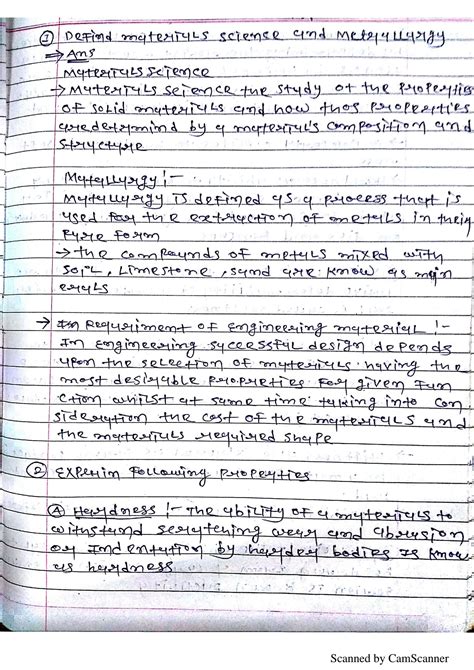 ① Defind materials science and Metallurgy
→ Ans
Materials science
→ Materials science the study of the properties
of solid materials and how thos properties
are determind by a material's composition and
structure
Metallurgy :-
Metallurgy is defined as a process that is
used for the extraction of metals in their
pure form
→ the compounds of metals mixed with
soil, Limestone, sand are know as min
erals
→ In Requriment of engineering material :-
In Engineering successful design depends
upon the selection of materials having the
most desirable properties for given fun
ction whilst at same time taking into con
sideration the cost of the materials and
the materials required shape
② Experin following properties
Ⓐ Hardness :- The ability of a materials to
withstand scratching wear and abrasion
or Indentation by harder bodies is know
as hardness
Scanned by CamScanner